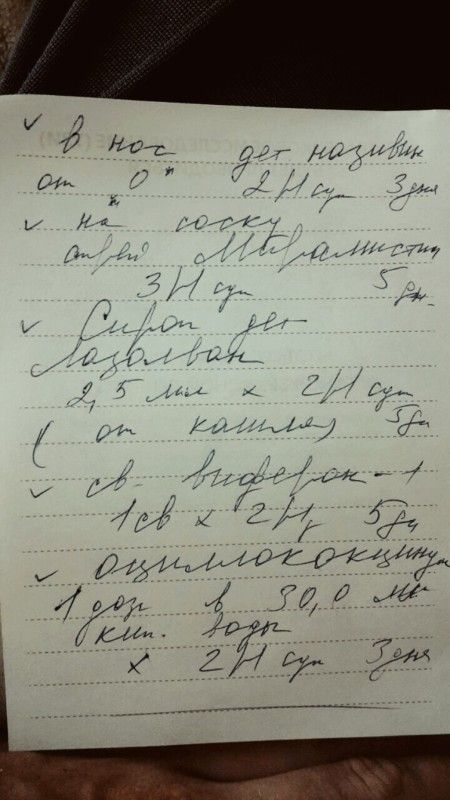 ✓ в нос дет називин
от 0* 2 р/сут 3 дня
✓ на соску
спрей Мирамистин
3 р/сут 5 дн.
✓ Сироп дет
Лазолван
2,5 мл х 2 р/сут
(от кашля) 5 дн
✓ св. виферон - 1
1 св х 2 р/ 5 дн
✓ оциллококцинум
1 доз в 30,0 мл
кип. воды
х 2 р/сут 3 дня